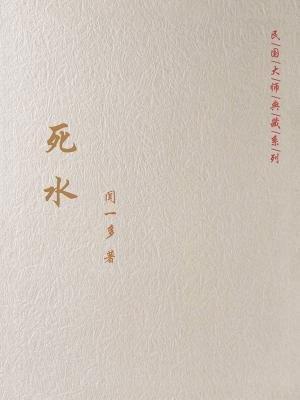 民国大师典藏系列
死水
闻一多 著